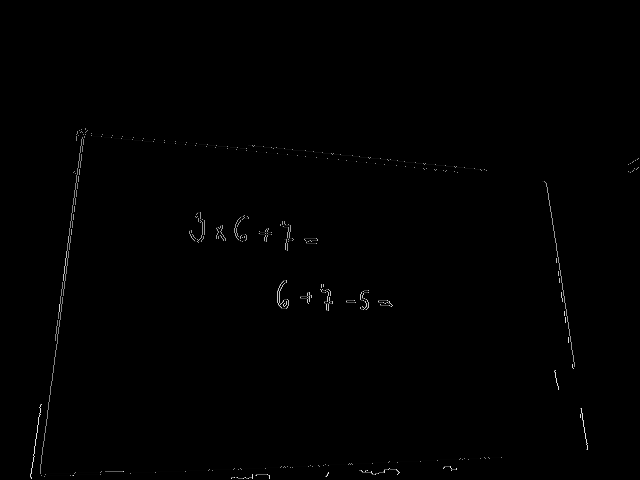 3 x 6 + 7 =
6 + 7 - 5 =